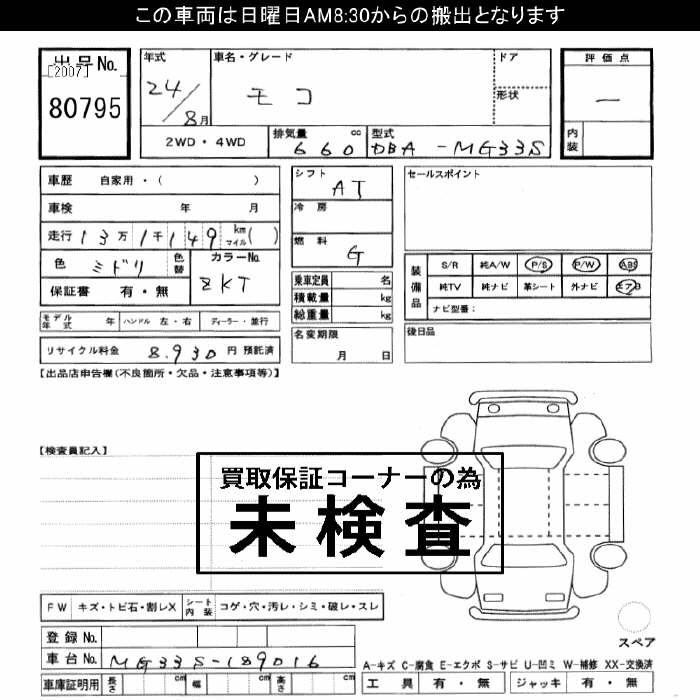 この車両は日曜日AM8:30からの搬出となります
出品No.
[2007]
80795
年式
24/8月
車名・グレード
モコ
ドア
形状
評価点
—
内装
2WD・4WD
排気量 cc
660
型式
DBA-MG33S
車歴 自家用・( )
車検 年 月
走行 13万1千149 km マイル( )
色 ミドリ 色替
カラーNo.
ZKT
保証書 有・無
シフト
AT
冷房
燃料
G
セールスポイント
装備品
S/R 純A/W P/S P/W ABS
純TV 純ナビ 革シート 外ナビ エアB
ナビ型番:
乗車定員 名
積載量 kg
総重量 kg
モデル年式 年 ハンドル 左・右 ディーラー・並行
名変期限
月 日
後日品
リサイクル料金 8,930 円 預託済
【出品店申告欄(不良箇所・欠品・注意事項等)】
【検査員記入】
買取保証コーナーの為
未検査
FW キズ・トビ石・割レX シート内装 コゲ・穴・汚レ・シミ・破レ・スレ
登録No.
車台No. MG33S-189016
車庫証明用 長さ cm 幅 cm 高さ cm
スペア
A-キズ C-腐食 E-エクボ S-サビ U-凹ミ W-補修 XX-交換済
工具 有・無 ジャッキ 有・無